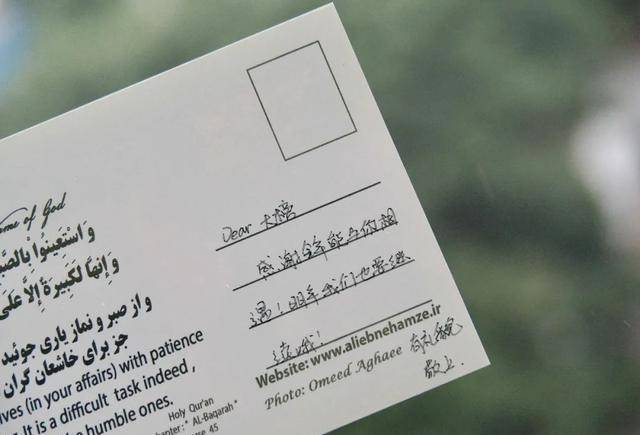 me of God
وَاسْتَعِينُوا بِالصَّبـ
وَإِنَّهَا لَكَبِيرَةٌ إِلَّا عَلَى
و از صبر و نماز یاری جوئید
جز برای خاشعان گران
ives (in your affairs) with patience
It is a difficult task indeed ,
he humble ones.
Holy Qur'an
hapter: " AL-Baqarah "
se 45
Dear 卡
感谢今年能与你相
遇！明年我们也要继
续哦！
Website: www.aliebnehamze.ir
Photo: Omeed Aghaee
有礼貌
敬上.